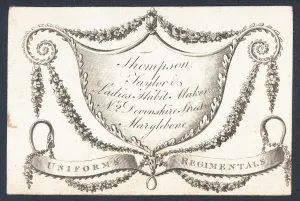 Thompson
Taylor &
Ladies Habit Maker
No. 5 Devonshire Street
Marylebone
UNIFORMS REGIMENTALS